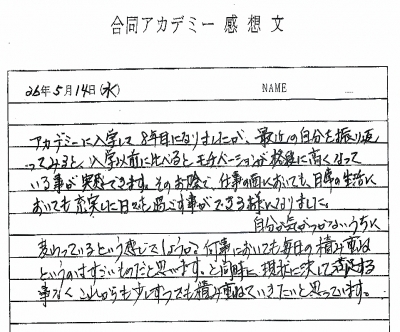 合同アカデミー感想文
26年5月14日(水) NAME
アカデミーに入学して8年目になりましたが、最近の自分を振り返
ってみると、入学以前に比べるとモチベーションが格段に高くなって
いる事が実感できます。そのお陰で、仕事の面においても、日常の生活に
おいても充実した日々を過ごす事ができる様になりました。
自分が気がつかないうちに
変わっているという感じでしょうか。何事においても毎日の積み重ね
というのはすごいものだと思います。と同時に、現状に決して満足する
事なく、これからも少しずつでも積み重ねていきたいと思っています。